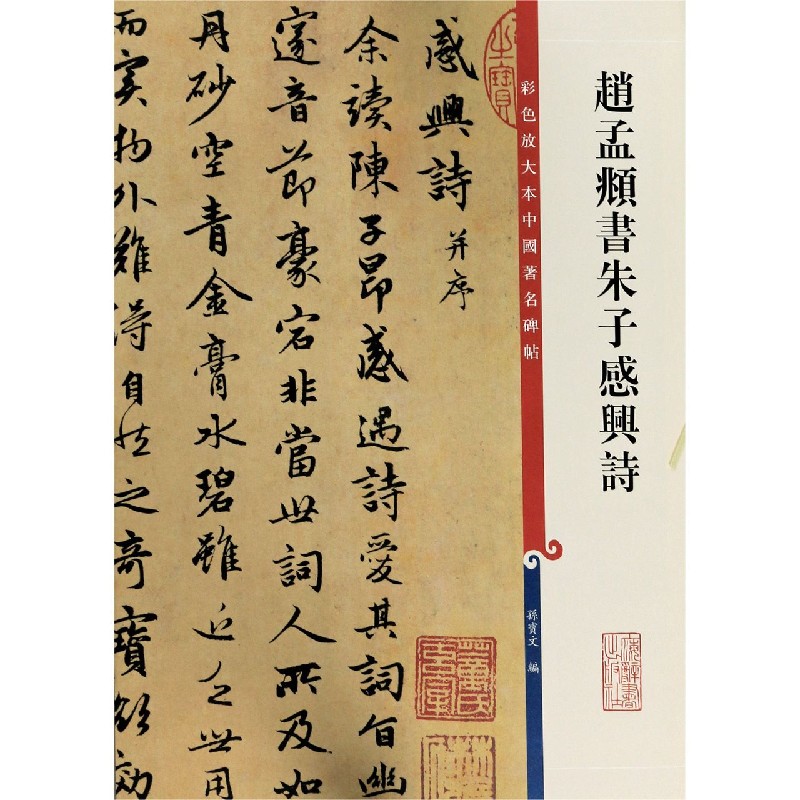 趙孟頫書朱子感興詩
彩色放大本中國著名碑帖
孫寶文 編
上海辭書出版社
感興詩 并序
余讀陳子昂感遇詩愛其詞旨幽
邃音節豪宕非當世詞人所及如
丹砂空青金膏水碧雖近乏世用
而實物外難得自然之奇寶欲效
之寶